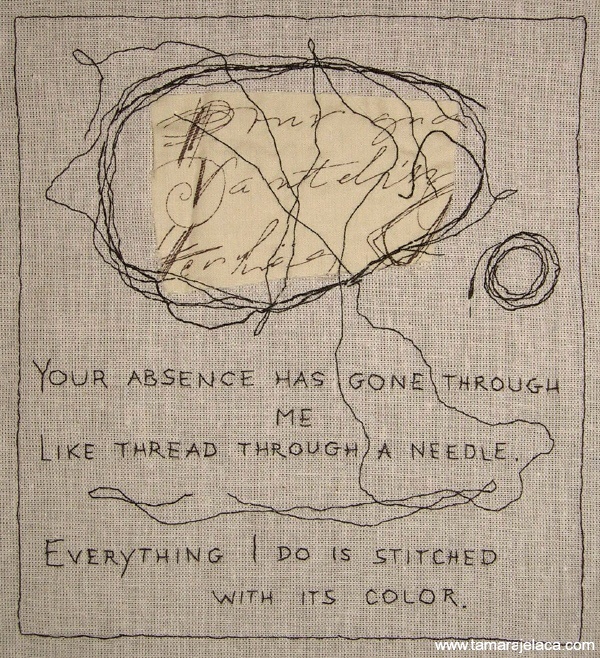 YOUR ABSENCE HAS GONE THROUGH
ME
LIKE THREAD THROUGH A NEEDLE.
EVERYTHING I DO IS STITCHED
WITH ITS COLOR.
www.tamarajelaca.com